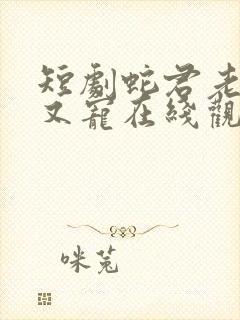 短劇蛇君老
又寵在綫觀
咪菟